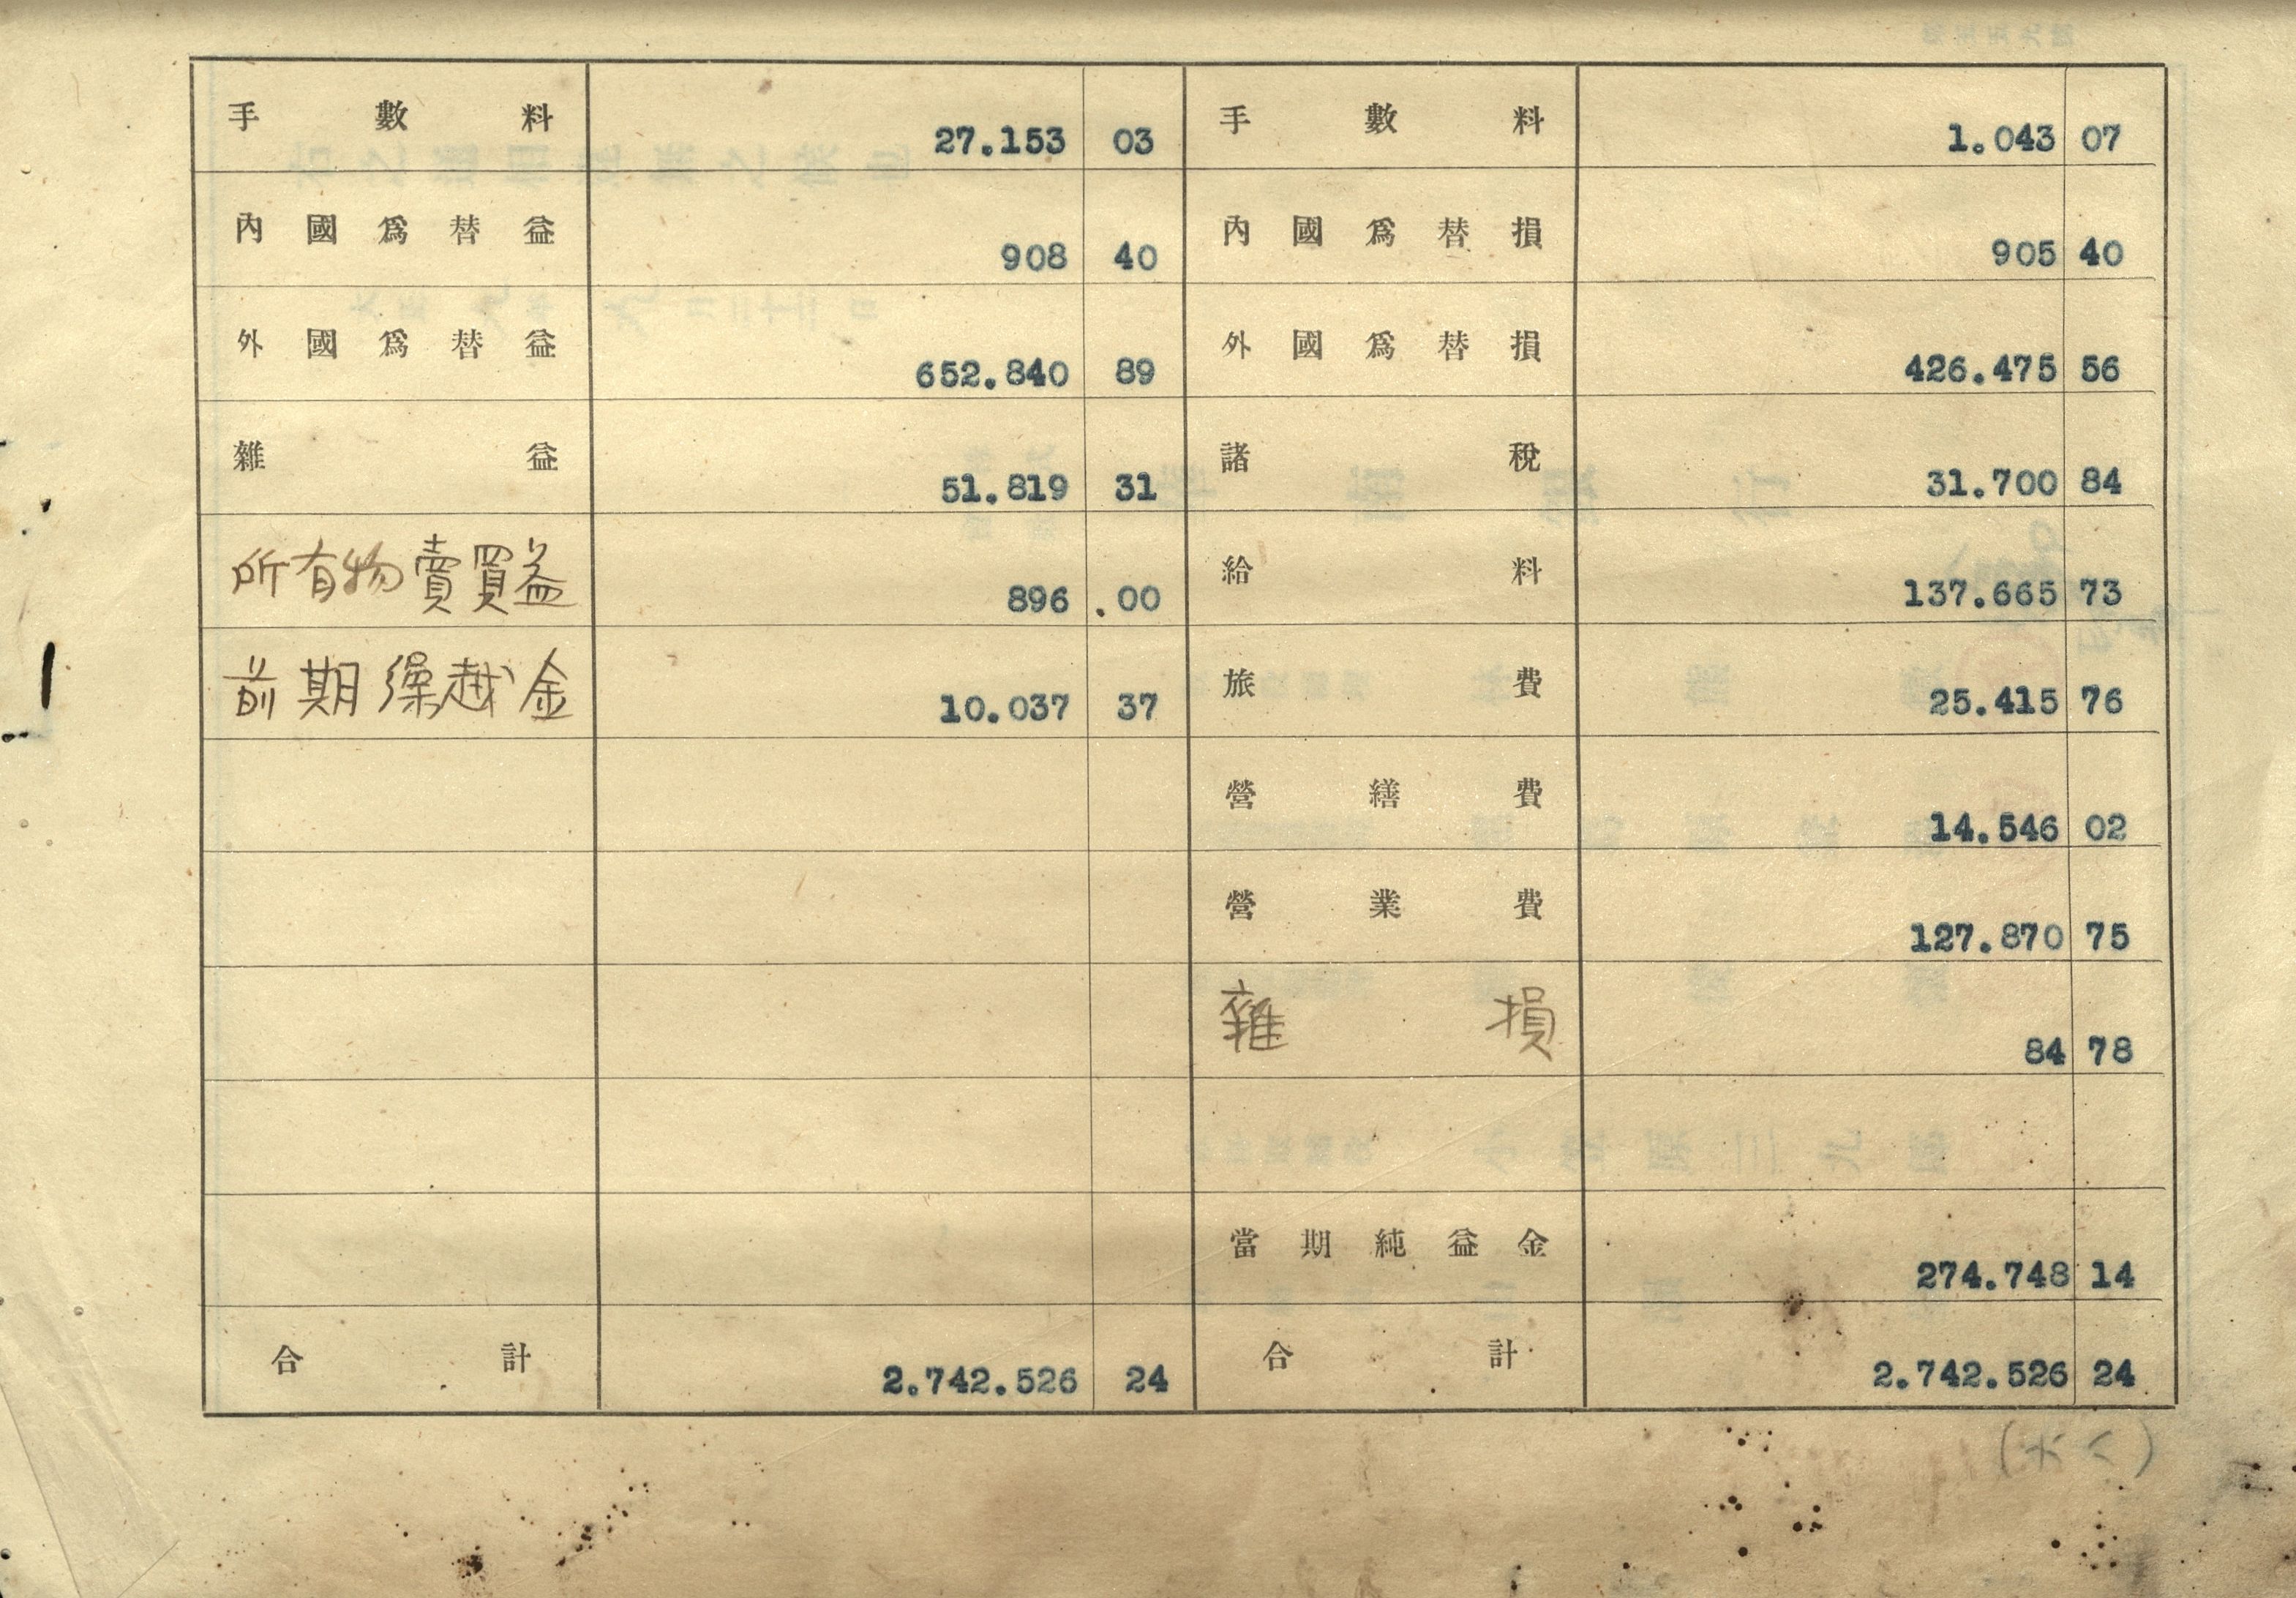 手數料 27.153 03 手數料 1.043 07
內國爲替益 908 40 內國爲替損 905 40
外國爲替益 652.840 89 外國爲替損 426.475 56
雜益 51.819 31 諸稅 31.700 84
所有物賣買益 896 .00 給料 137.665 73
前期繰越金 10.037 37 旅費 25.415 76
營繕費 14.546 02
營業費 127.870 75
雜損 84 78
當期純益金 274.748 14
合計 2.742.526 24 合計 2.742.526 24